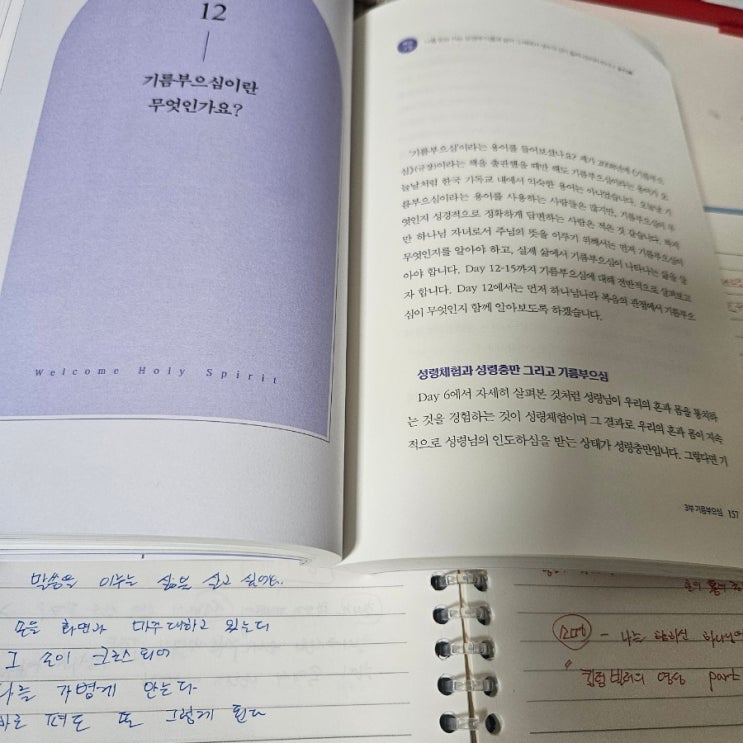 12
기름부으심이란
무엇인가요?
Welcome Holy Spirit
'기름부으심'이라는 용어를 들어보셨나요? 제가 2008년에 《기름부으
심》(규장)이라는 책을 출판했을 때만 해도 기름부으심이라는 용어가 오
늘날처럼 한국 기독교 내에서 익숙한 용어는 아니었습니다. 오늘날 기
름부으심이라는 용어를 사용하는 사람들은 많지만, 기름부으심이 무
엇인지 성경적으로 정확하게 답변하는 사람은 적은 것 같습니다. 하지
만 하나님 자녀로서 주님의 뜻을 이루기 위해서는 먼저 기름부으심이
무엇인지를 알아야 하고, 실제 삶에서 기름부으심이 나타나는 삶을 살
아야 합니다. Day 12-15까지 기름부으심에 대해 전반적으로 살펴보고
자 합니다. Day 12에서는 먼저 하나님나라 복음의 관점에서 기름부으
심이 무엇인지 함께 알아보도록 하겠습니다.
성령체험과 성령충만 그리고 기름부으심
Day 6에서 자세히 살펴본 것처럼 성령님이 우리의 혼과 몸을 통치하
는 것을 경험하는 것이 성령체험이며 그 결과로 우리의 혼과 몸이 지속
적으로 성령님의 인도하심을 받는 상태가 성령충만입니다. 그렇다면 기
3부 기름부으심 157
말씀을 이루는 삶을 살고 싶어요..
모든 화면과 마주대하고 있는다
그 손이 크로스 되어
나를 가볍게 안는다
바로 펴도 또 그렇게 된다
- 나는
영상 part